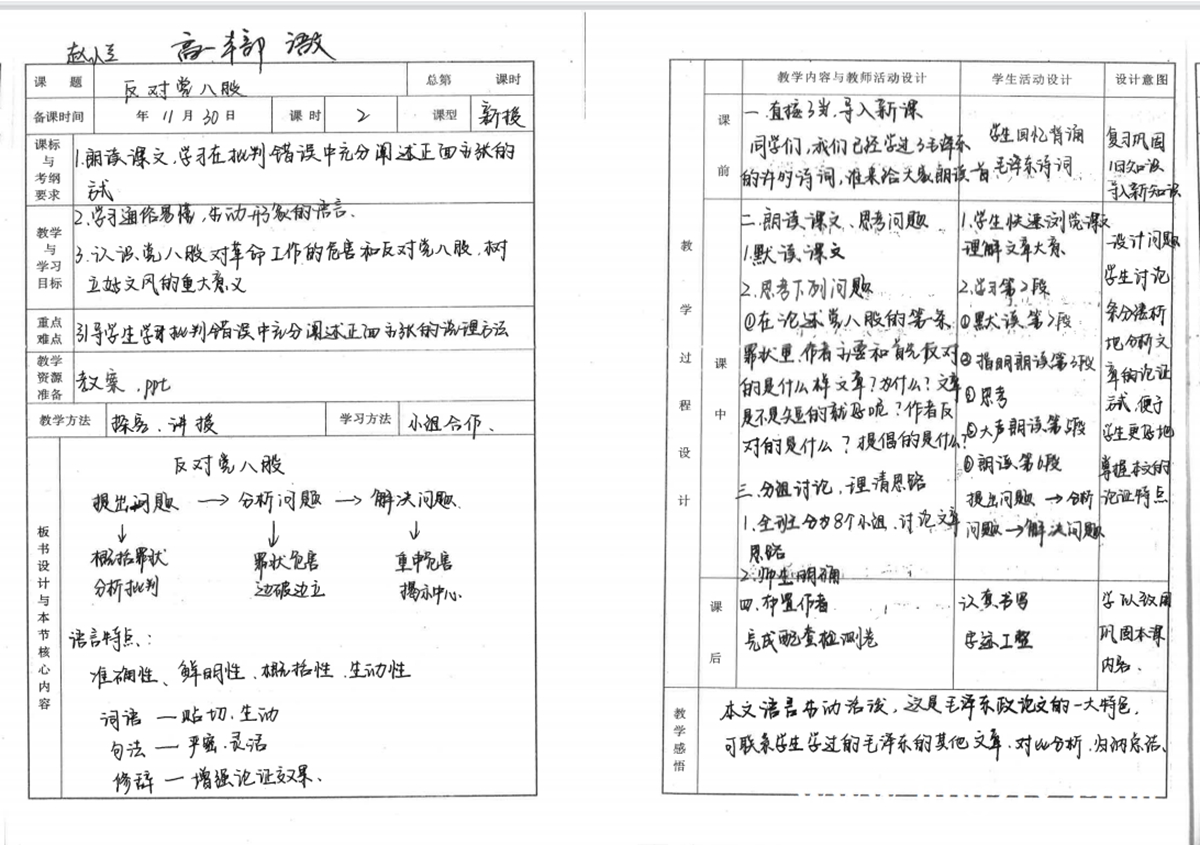 高一本部 语文
课 题 反对党八股 总第 课时
备课时间 年 11 月 30 日 课 时 2 课型 新授
课标与考纲要求
1.朗读课文,学习在批判错误中充分阐述正面主张的
试
教学与学习目标
2.学习通俗易懂,生动形象的语言.
3.认识党八股对革命工作的危害和反对党八股,树
立好文风的重大意义
重点难点
引导学生学习批判错误中充分阐述正面主张的说理方法
教学资源准备
教案.ppt
教学方法 探号.讲授 学习方法 小组合作、
板书设计与本节核心内容
反对党八股
提出问题 → 分析问题 → 解决问题
↓ ↓ ↓
概括罪状 罪状危害 重申危害
分析批判 边破边立 揭示中心
语言特点:
准确性、鲜明性、概括性、生动性
词语 — 贴切.生动
句法 — 严密.灵活
修辞 — 增强论证效果.
教学过程设计
教学内容与教师活动设计 学生活动设计 设计意图
课前
一.直接导入,导入新课
同学们,我们已经学过了毛泽东
的许多诗词,谁来给大家朗读一首
学生回忆背诵
毛泽东诗词
复习巩固
旧知识
导入新知识
课中
二.朗读课文、思考问题
1.默读课文
2.思考下列问题
①在论述党八股的第一条
罪状里,作者主要和首先反对
的是什么样文章?为什么?文章
是不是短的就好呢?作者反
对的是什么?提倡的是什么?
三.分组讨论,理清思路
1.全班分为8个小组,讨论文章
思路
2.师生明确
1.学生快速浏览课文
理解文章大意
2.学习第2段
①默读第2段
②指明朗读第3段
③思考
④大声朗读第5段
⑤朗读第6段
提出问题 → 分析
问题 → 解决问题
设计问题
学生讨论
条分缕析
地分析文
章的论证
试,便于
学生更好地
掌握本文的
论证特点
课后
四.布置作者
完成配套检测卷
认真书写
字迹工整
学以致用
巩固本课
内容.
教学感悟
本文语言生动活泼,这是毛泽东政论文的一大特色,
可联系学生学过的毛泽东的其他文章.对比分析.归纳总结、